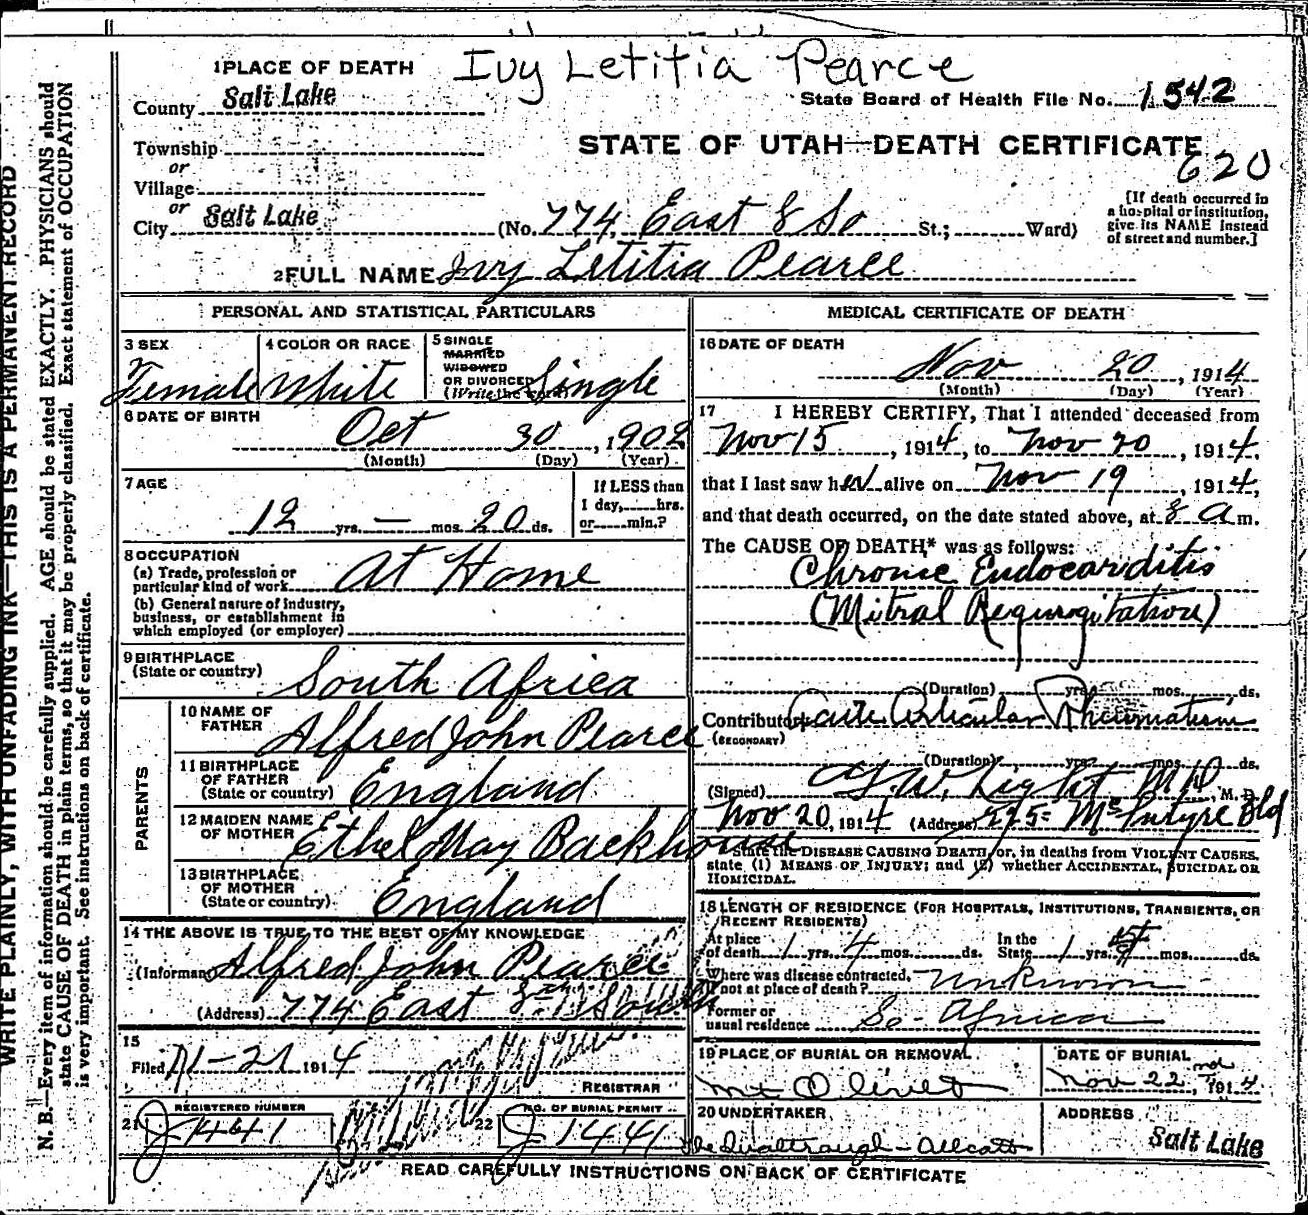 Ivy Letitia Pearce
1 PLACE OF DEATH
County Salt Lake
State Board of Health File No. 1542
Township
STATE OF UTAH—DEATH CERTIFICATE
620
or
Village
or
City Salt Lake (No. 774 East 8 So St.; Ward)
[If death occurred in a hospital or institution, give its NAME instead of street and number.]
2 FULL NAME Ivy Letitia Pearce
PERSONAL AND STATISTICAL PARTICULARS
3 SEX Female
4 COLOR OR RACE White
5 SINGLE
MARRIED
WIDOWED
OR DIVORCED
(Write the word) Single
6 DATE OF BIRTH
Oct 30, 1902
(Month) (Day) (Year)
7 AGE
12 yrs. — mos. 20 ds.
If LESS than
1 day, hrs.
or min.?
8 OCCUPATION
(a) Trade, profession or
particular kind of work At Home
(b) General nature of industry,
business, or establishment in
which employed (or employer)
9 BIRTHPLACE
(State or country) South Africa
PARENTS
10 NAME OF
FATHER Alfred John Pearce
11 BIRTHPLACE
OF FATHER
(State or country) England
12 MAIDEN NAME
OF MOTHER Ethel May Backhouse
13 BIRTHPLACE
OF MOTHER
(State or country) England
14 THE ABOVE IS TRUE TO THE BEST OF MY KNOWLEDGE
(Informant) Alfred John Pearce
(Address) 774 East 8th South
15
Filed 11-21 1914
REGISTRAR
21 REGISTERED NUMBER
J 1441
22 NO. OF BURIAL PERMIT
J 1441
MEDICAL CERTIFICATE OF DEATH
16 DATE OF DEATH
Nov 20, 1914
(Month) (Day) (Year)
17 I HEREBY CERTIFY, That I attended deceased from
Nov 15, 1914, to Nov 20, 1914,
that I last saw her alive on Nov 19, 1914,
and that death occurred, on the date stated above, at 8 a m.
The CAUSE OF DEATH* was as follows:
Chronic Endocarditis
(Mitral Regurgitation)
(Duration) yrs. mos. ds.
Contributory Acute Articular Rheumatism
(SECONDARY)
(Duration) yrs. mos. ds.
(Signed) W. Light M D, M. D.
Nov 20, 1914 (Address) 275 McIntyre Bld
State the DISEASE CAUSING DEATH, or, in deaths from VIOLENT CAUSES,
state (1) MEANS OF INJURY; and (2) whether ACCIDENTAL, SUICIDAL OR
HOMICIDAL.
18 LENGTH OF RESIDENCE (FOR HOSPITALS, INSTITUTIONS, TRANSIENTS, OR
RECENT RESIDENTS)
At place
of death 1 yrs. 4 mos. ds. In the
State 1 yrs. 4 mos. ds.
Where was disease contracted,
if not at place of death? Unknown
Former or
usual residence So. Africa
19 PLACE OF BURIAL OR REMOVAL
Mt Olivet
DATE OF BURIAL
Nov 22nd, 1914
20 UNDERTAKER
ADDRESS
Salt Lake
READ CAREFULLY INSTRUCTIONS ON BACK OF CERTIFICATE
WRITE PLAINLY, WITH UNFADING INK—THIS IS A PERMANENT RECORD
N. B.—Every item of information should be carefully supplied. AGE should be stated EXACTLY. PHYSICIANS should
state CAUSE OF DEATH in plain terms, so that it may be properly classified. Exact statement of OCCUPATION
is very important. See instructions on back of certificate.